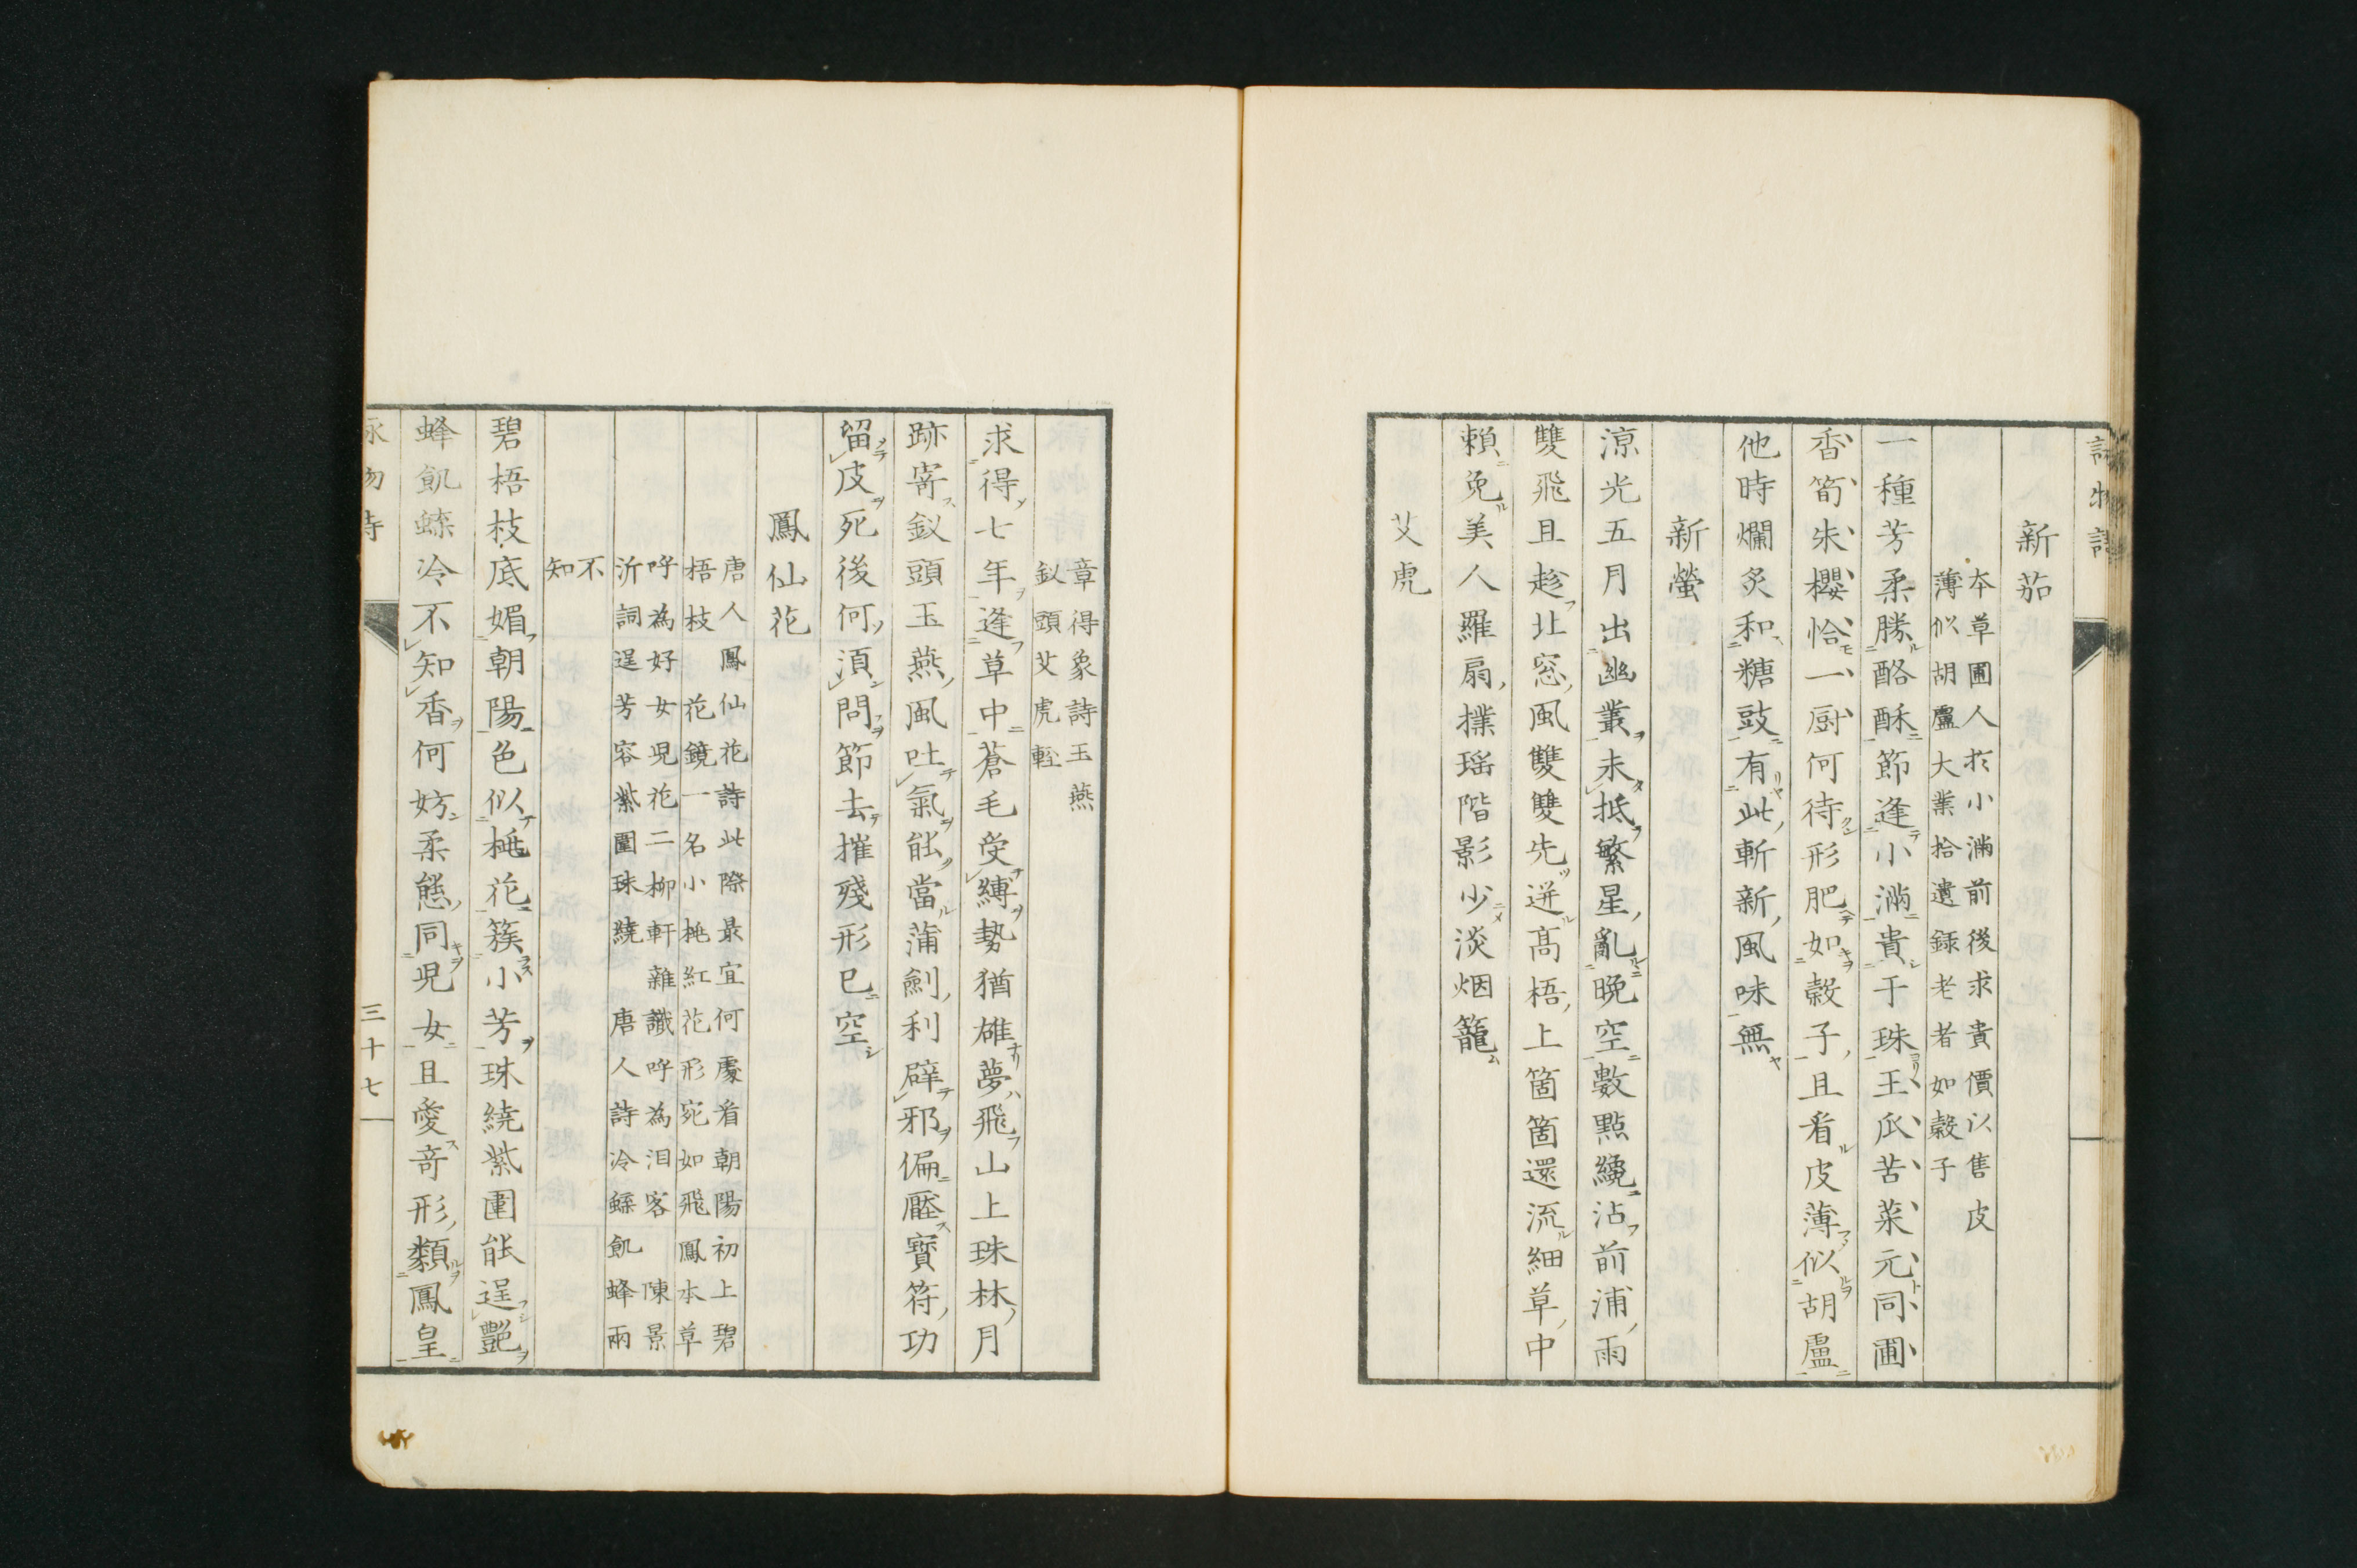 新茄
本草圃人於小滿前後求貴價以售皮
薄似胡盧大業拾遺録老者如穀子
一種芳柔勝酪酥節逢小滿貴于珠王瓜苦菜元同圃
香筍朱櫻恰一厨何待形肥如穀子且看皮薄似胡盧
他時爛炙和糖豉有此斬新風味無
新螢
涼光五月出幽叢未抵繁星亂晚空數點纔沾前浦雨
雙飛且趁北窓風雙雙先迸髙梧上箇箇還流細草中
賴免美人羅扇撲瑶階影少淡烟籠
艾虎
章得象詩玉燕
釵頭艾虎輕
求得七年逢草中蒼毛受縛勢猶雄夢飛山上珠林月
跡寄釵頭玉燕風吐氣能當蒲劍利辟邪偏壓寳符功
留皮死後何須問節去摧殘形已空
鳳仙花
唐人鳳仙花詩此際最宜何處看朝陽初上碧
梧枝花鏡一名小桃紅花形宛如飛鳳本草
呼為好女兒花二柳軒雜識呼為泪客陳景
沂詞逞芳容紫圍珠繞唐人詩冷蝶飢蜂兩
不
知
碧梧枝底媚朝陽色似桃花簇小芳珠繞紫圍能逞艷
蜂飢蝶冷不知香何妨柔態同兒女且愛竒形類鳳皇
詠物詩
三十七